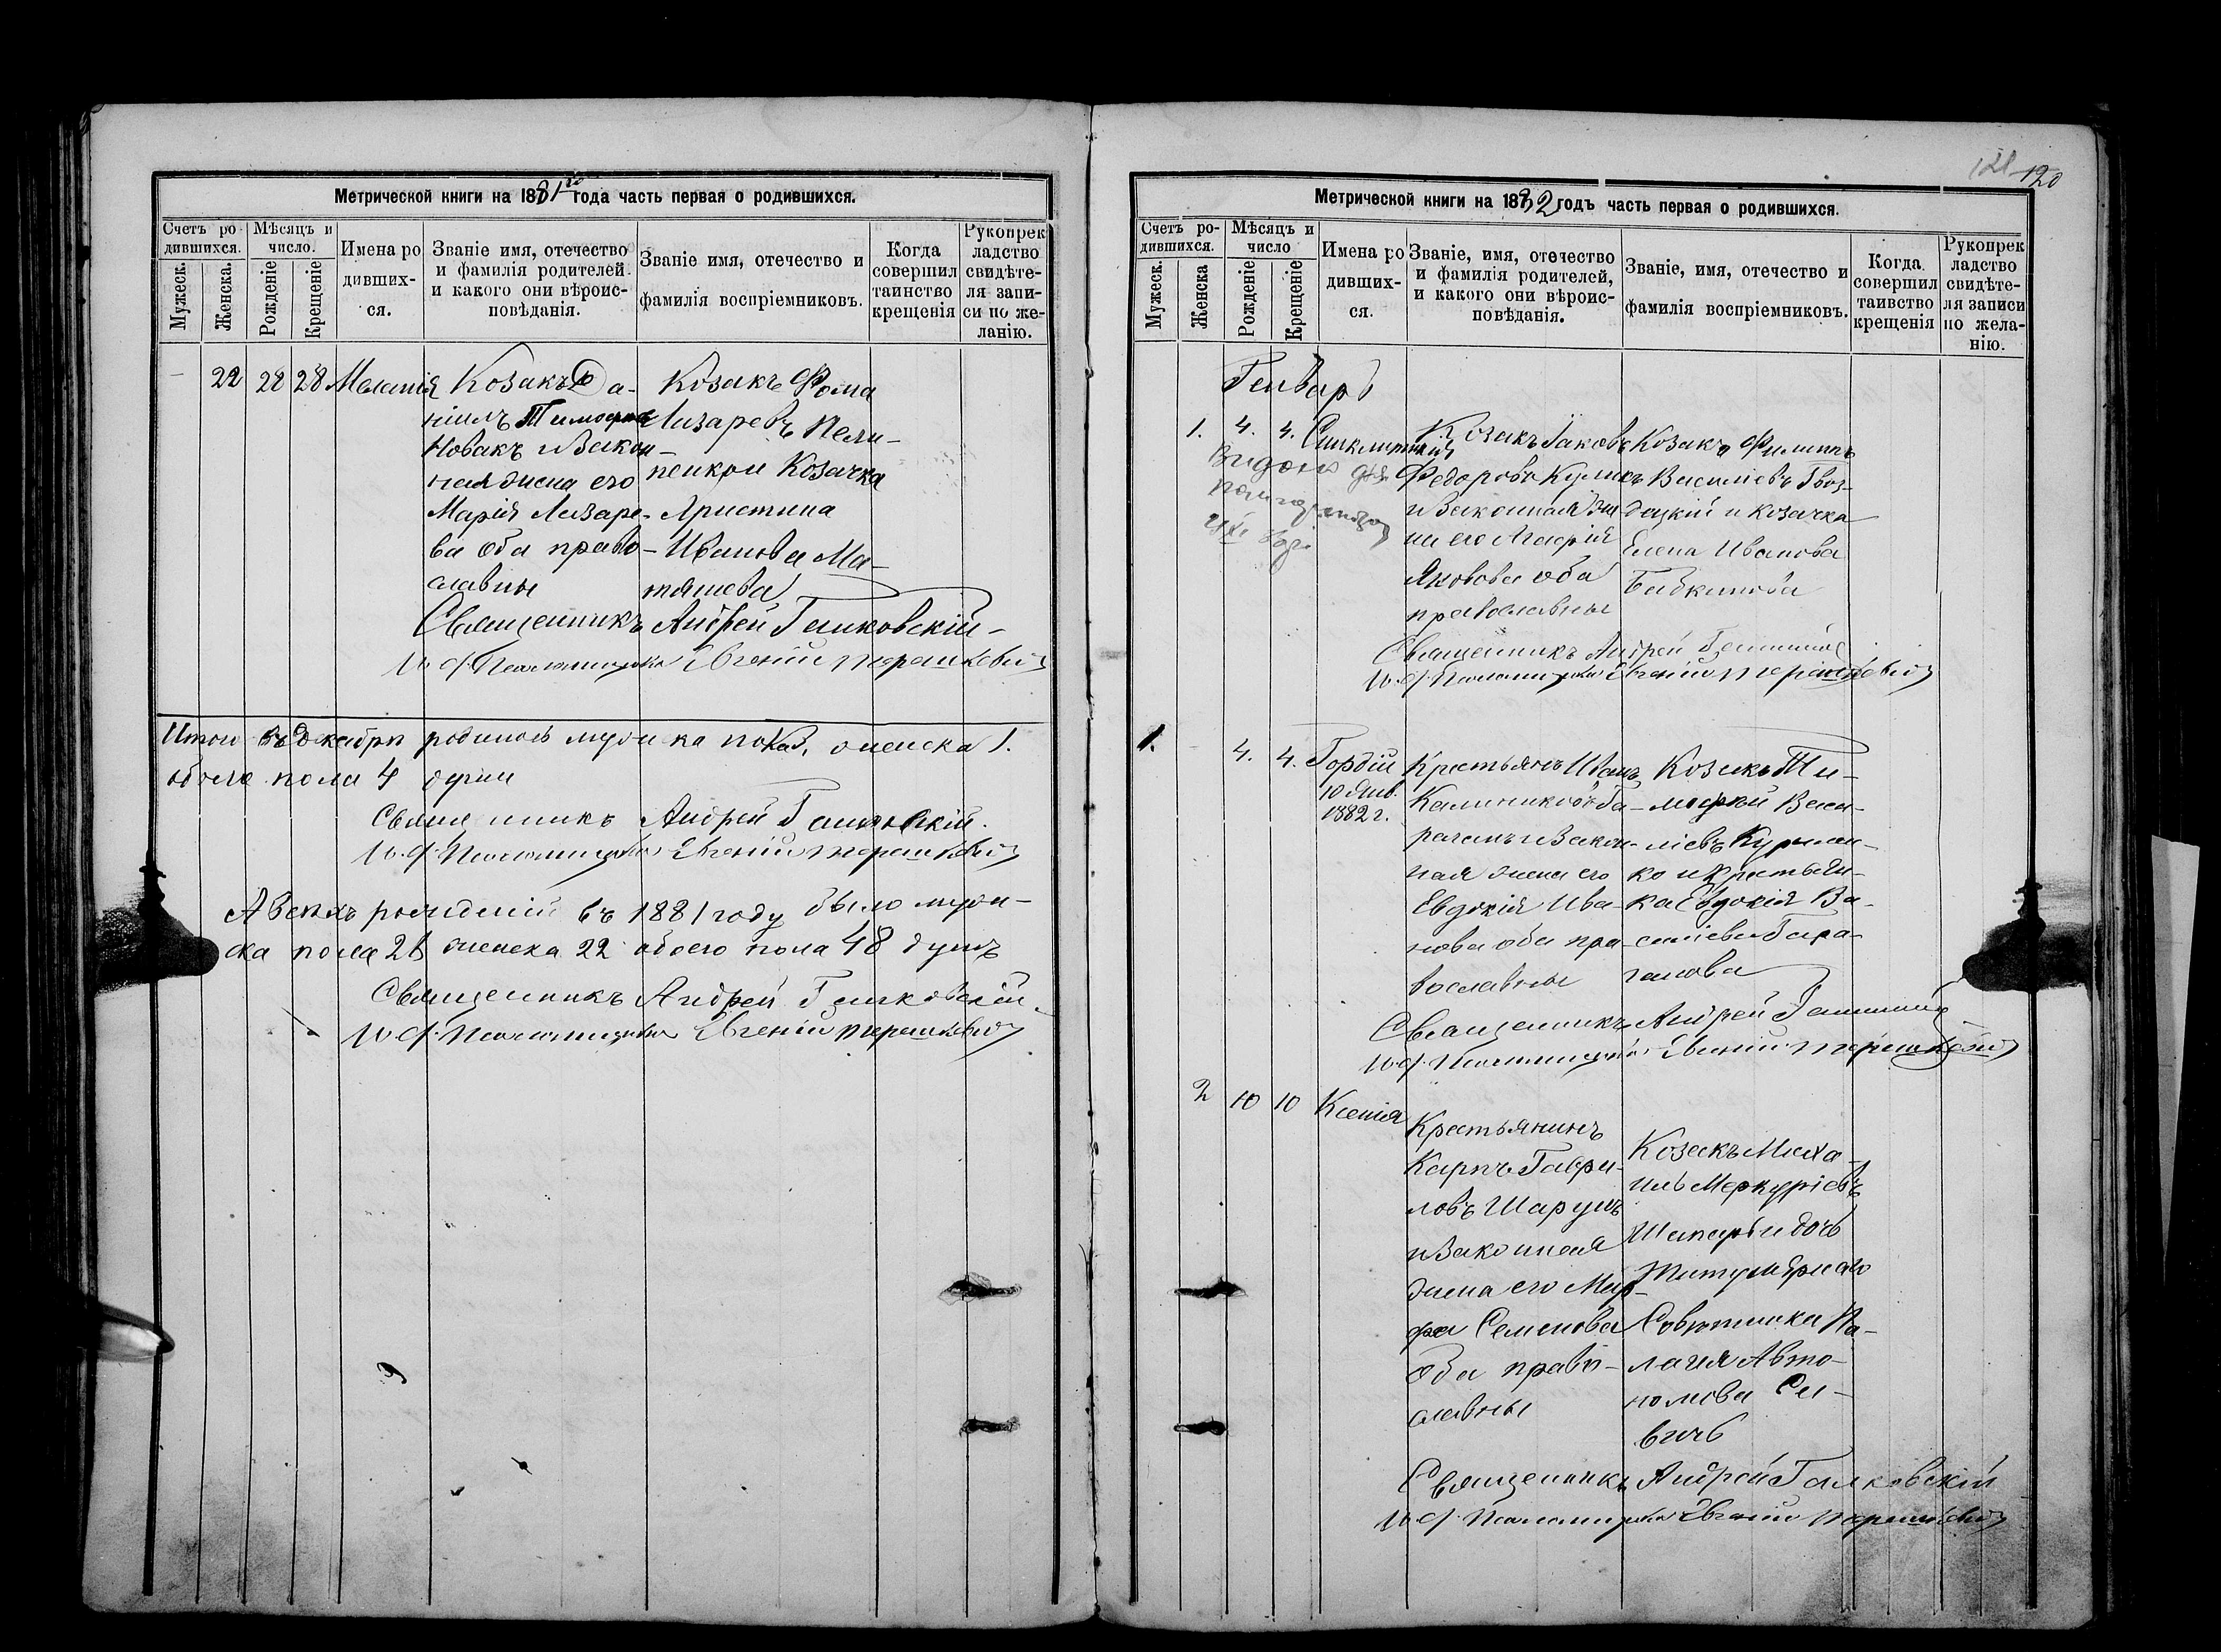 Метрической книги на 1881го года часть первая о родившихся.
Счетъ родившихся.
Мѣсяцъ и число.
Мужеск.
Женска.
Рожденіе
Крещеніе
Имена родивших-ся.
Званіе имя, отечество и фамилія родителей. и какого они вѣроис-повѣданія.
Званіе имя, отечество и фамилія воспріемниковъ.
Когда совершил таинство крещенія
Рукоприкладство свидѣте-ля запи-си по же-ланію.
22 22 28 Меланія
Козакъ Да-
ніилъ
Новакъ и закон-
ная жена его
Марія Лазаре-
ва оба право-
славны
Козакъ Фома
Лазаревъ Пели-
пенкои Козачка
Христина
Иванова Ма-
тяшева
Священникъ Андрей
И. д. Псаломщика Евгеній Терешкевичъ
Итого въ Декабрѣ родилось мужска пола 3, женска 1.
обоего пола 4 души
Священникъ Андрей
И. д. Псаломщика Евгеній Терешкевичъ
А всѣхъ рожденій въ 1881 году было муж-
ска пола 26 женска 22 обоего пола 48 душъ
Священникъ Андрей
И. д. Псаломщика Евгеній Терешкевичъ
121 120
Метрической книги на 1882 годъ часть первая о родившихся.
Счетъ ро-дившихся.
Мѣсяцъ и число
Мужеск.
Женска
Рожденіе
Крещеніе
Имена ро дивших-ся.
Званіе, имя, отечество и фамилія родителей, и какого они вѣроис-повѣданія.
Званіе, имя, отечество и фамилія воспріемниковъ.
Когда совершил таивство крещенія
Рукопрек ладство свидѣте-ля записи по жела-нію.
Генварь
1. 4. 4. Синклитикія
Козакъ Іаковъ
Федоровъ Куликъ
и законная же-
на его Агафія
Яковова оба
православны
Козакъ Филиппъ
Василіевъ Гвоз-
дацкій и козачка
Елена Иванова
Бабкинова
Священникъ Андрей
И. д. Псаломщика Евгеній Терешкевичъ
1. 4. 4. Гордій
10 Янв.
1882 г.
Крестьянъ Иванъ
Калиниковъ Га-
рагачъ и закон-
ная жена его
Евдокія Ива-
нова оба пра-
вославны
Козакъ Ти-
мофей Васи-
ліевъ
ко и крестьян-
ка Евдокія Ва-
силіева Гара-
Священникъ Андрей
И. д. Псаломщика Евгеній Терешкевичъ
2 10 10 Ксенія
Крестьянинъ
Карпъ Гаври-
ловъ
и законная
жена его Мар-
фа Семенова
оба право-
славны
Козакъ Миха-
илъ Меркуріевъ
и дочь
Титулярнаго
Совѣтника Па-
лагія Авто-
номова Са-
вичъ
Священникъ Андрей
И. д. Псаломщика Евгеній Терешкевичъ